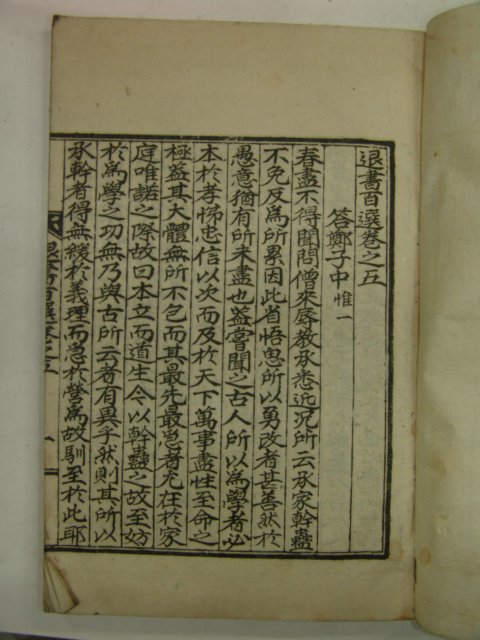 退書百選卷之五
答鄭子中惟一
春盡不得聞問僧來辱教承悉近況所云承家幹蠱
不免反爲所累因此省悟思所以勇改者甚善然於
愚意猶有所未盡也蓋嘗聞之古人所以爲學者必
本於孝悌忠信以次而及於天下萬事盡性至命之
極蓋其大體無所不包而其最先最急者尤在於家
庭唯諾之際故曰本立而道生今以幹蠱之故至妨
於爲學之功無乃與古所云者有異乎然則其所以
承幹者得無緩於義理而急於營爲故馴至於此耶
退書百選卷之五 一